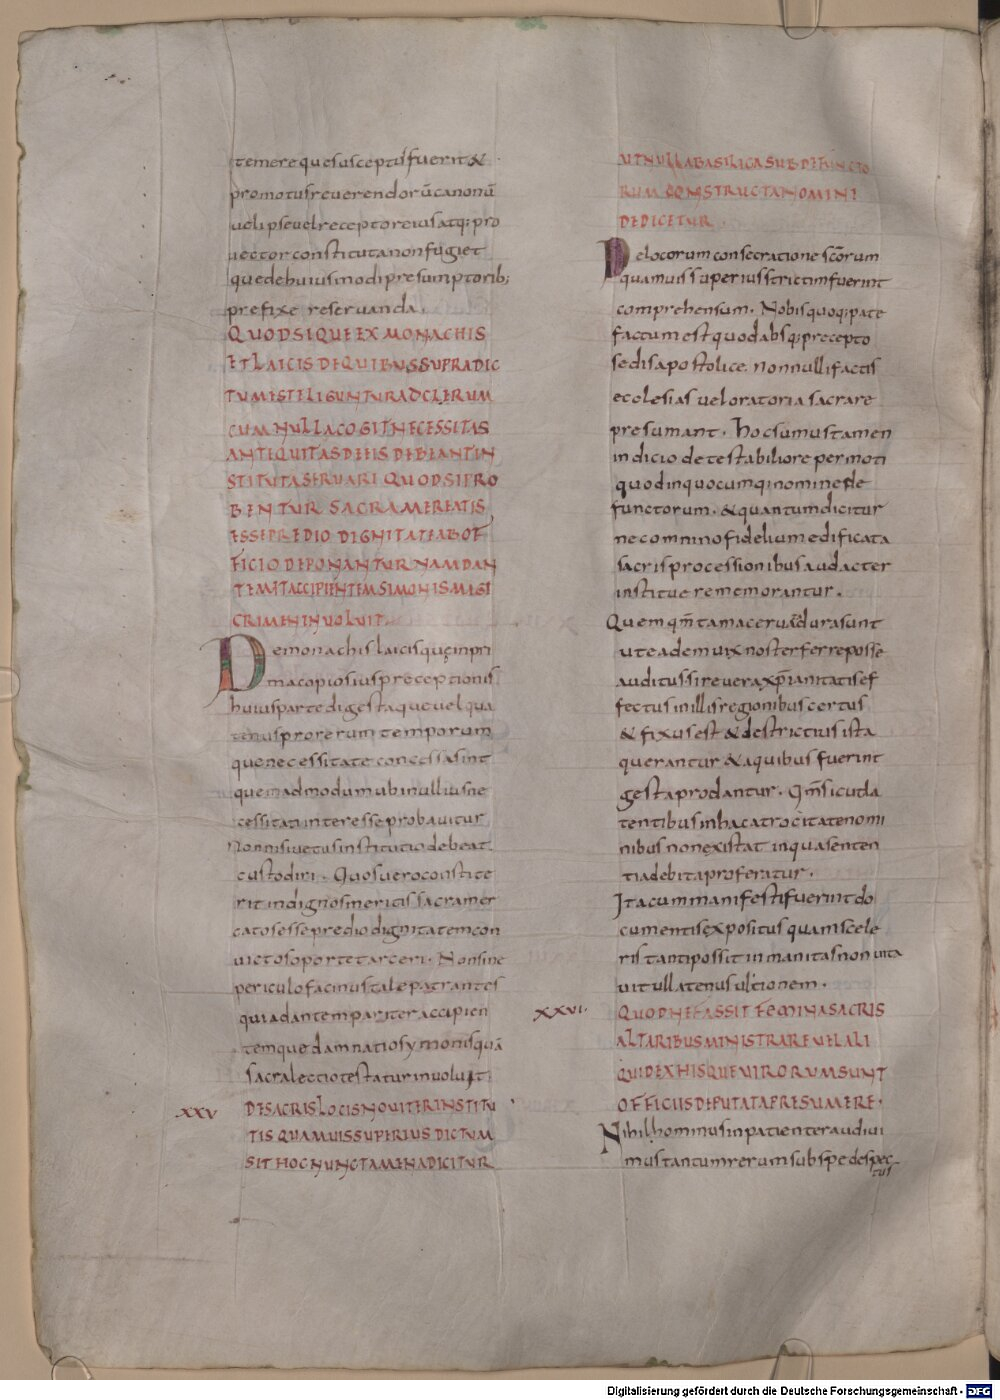 temere que susceptus fuerit &
promotus reuerendorū canonū
uel ipse uel receptor eius atq; pro
uector constituta non fugiet
que de huiusmodi presumptorib;
prefixe reseruanda.
QUOD SI QUE EX MONACHIS
ET LAICIS DE QUIBUS SUPRA DIC
TUM EST ELIGUNTUR AD CLERUM
CUM NULLA COGIT NECESSITAS
ANTIQUITAS DE EIS DEBEANT IN
STITUTA SERUARI QUOD SI PRO
BENTUR SACRAMERE ATIS
ESSE PREDIO DIGNITATE AB OF
FICIO DEPONANTUR NAM DAN
TEM ET ACCIPIENTEM SIMONIS MAGI
CRIMEN INUOLUIT
De monachis laicisquę in pri
ma copiosius preceptionis
huius parte digesta que uel qua
tenus pro rerum temporum
que necessitate concessa sint
quemadmodum ubi nullius ne
cessitati interesse probauitur
Non nisi uetus institutio debeat
custodiri. Quos uero constite
rit indignos meritis sacramer
catos esse predio dignitatem con
uictos oportet arceri. Non sine
periculo facinus tale patrantes
quia dantem pariter accipien
temque damnatio symonis quā
sacra lectio testatur inuoluit
XXV DE SACRIS LOCIS NOUITER INSTITU
TIS QUAMUIS SUPERIUS DICTUM
SIT HOC NUNC TAMEN ADICITUR
UT NULLA BASILICA SUB DEFUNCTO
RUM CONSTRUCTA NOMINE
DEDICETUR.
De locorum consecratione scōrum
quamuis superius strictim fuerint
comprehensum. Nobis quoq; pate
factum est quod absq; precepto
sedis apostolice. nonnulli factis
ecclesias uel oratoria sacrare
presumant. Hoc sumus tamen
indicio detestabiliore permoti
quod in quocumq; nomine de
functorum. & quantum dicitur
nec omnino fidelium edificata
sacris processionibus audacter
instituere memorantur.
Quem qm̄ tam acerua & dura sunt
ut eadem uix noster ferre posse
auditus si reuera xp̄ianitatis ef
fectus in illis regionibus certus
& fixus est & destrictius ista
querantur & a quibus fuerint
gesta prodantur. Qm̄ sicut la
tentibus in hac atrocitate nomi
nibus non existat in qua senten
tia debita proferatur.
Ita cum manifesti fuerint do
cumentis expositus quam scele
ris tanti possit inmanitas non uita
uit ullatenus ultionem.
XXVI. QUOD NEFAS SIT FEMINAS SACRIS
ALTARIBUS MINISTRARE UEL ALI
QUID EX HIS QUE UIRORUM SUNT
OFFICIIS DEPUTATA PRESUMERE.
Nihilhominus inpatienter audiui
mus tantum rerum subspe despec
tus
Digitalisierung gefördert durch die Deutsche Forschungsgemeinschaft - DFG